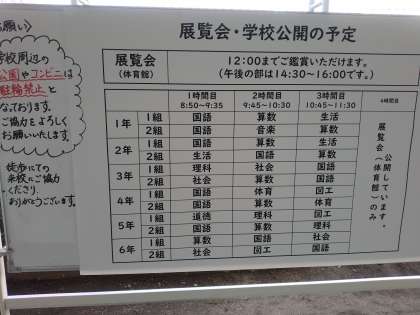 お願い〉
学校周辺の
公園やコンビニは
駐輪禁止と
なっております。
ご協力をよろしく
お願いいたします。
徒歩にての
来校にご協力
くださり
ありがとうございます
展覧会・学校公開の予定
展覧会
(体育館)
12:00までご鑑賞いただけます。
(午後の部は14:30~16:00です。)
1時間目 2時間目 3時間目 4時間目
8:50~9:35 9:45~10:30 10:45~11:30
1年 1組 国語 算数 生活
2組 国語 音楽 算数
2年 1組 国語 国語 算数
2組 生活 国語 算数
3年 1組 理科 社会 国語
2組 社会 算数 国語
4年 1組 国語 体育 図工
2組 国語 算数 体育
5年 1組 道徳 理科 図工
2組 国語 算数 理科
6年 1組 算数 国語 社会
2組 社会 図工 国語
公開しています。
展覧会(体育館)のみ